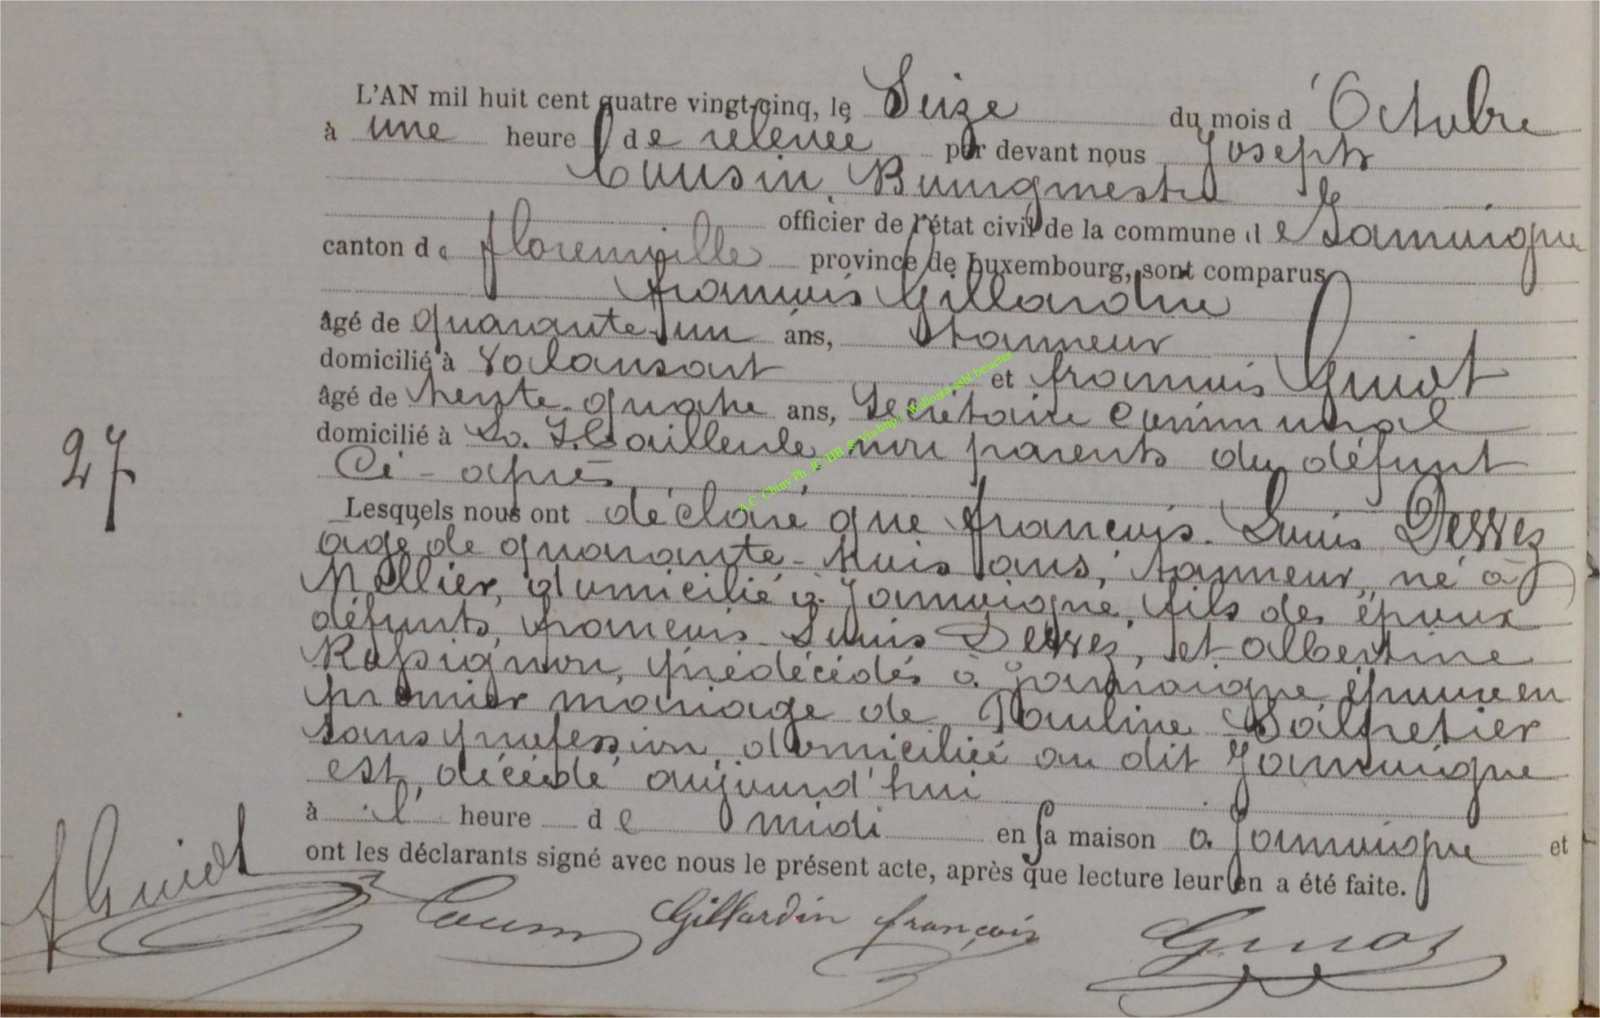 L'AN mil huit cent quatre vingt-cinq, le Seize du mois d'Octobre
à une heure de relevée par devant nous Joseph
Cousin Bourgmestre
officier de l'état civil de la commune de Jamoigne
canton de florenville province de Luxembourg, sont comparus
françois Gillardin
âgé de quarante-un ans, tanneur
domicilié à et françois Guiot
âgé de trente-quatre ans, Secrétaire Communal
domicilié à non parents du défunt
Ci-après
27
Lesquels nous ont déclaré que françois Louis Dessez
âgé de quarante-trois ans, tanneur, né à
Mellier, domicilié à Jamoigne, fils des époux
défunts, françois Louis Dessez, et albertine
Rossignon, prédécédés à Jamoigne, époux en
premier mariage de Pauline Salpetier
sans profession domiciliée au dit Jamoigne
est décédé aujourd'hui
à l' heure de midi en sa maison à Jamoigne et
ont les déclarants signé avec nous le présent acte, après que lecture leur en a été faite.
Guiot Cousin Gillardin françois